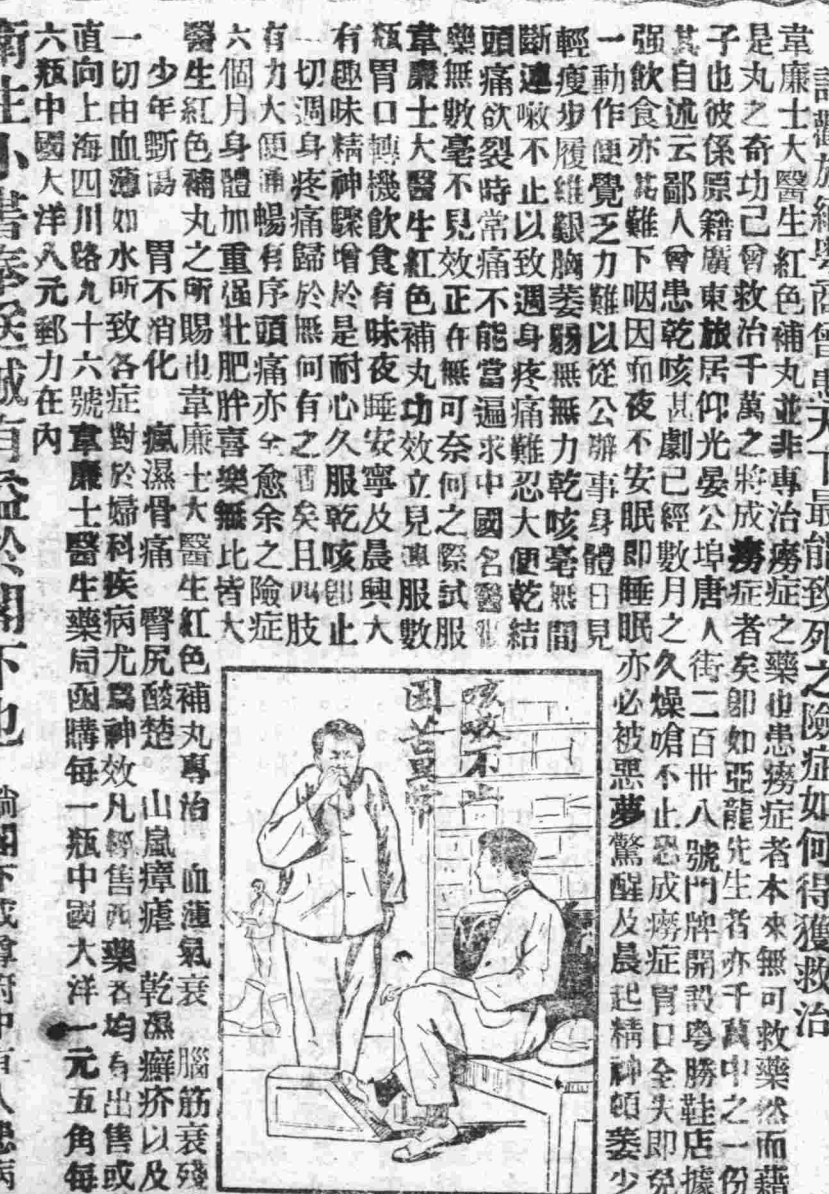 商曾患天下最能致死之險症如何得獲救治
韋廉士大醫生紅色補丸並非專治癆症之藥也患癆症者本來無可救藥然而藉
是丸之奇功已曾救治千萬之將成癆症者矣卽如亞龍先生者亦千萬中之一份
子也彼係原籍廣東旅居仰光晏公埠唐人街二百卅八號門牌開設粵勝鞋店據
其自述云鄙人曾患乾咳甚劇已經數月之久燥嗆不止恐成癆症胃口全失即免
强飲食亦甚難下咽因而夜不安眠即睡眠亦必被惡夢驚醒及晨起精神頓萎少
一動作便覺乏力難以從公辦事身體日見
輕瘦步履維艱胸萎弱無力乾咳毫無間
斷連嗽不止以致週身疼痛難忍大便乾結
頭痛欲裂時常痛不能當遍求中國名醫
藥無數毫不見效正在無可奈何之際試服
韋廉士大醫生紅色補丸功效立見連服數
瓶胃口轉機飲食有味夜睡安寧及晨興大
有趣味精神驟增於是耐心久服乾咳卽止
一切週身疼痛歸於無何有之鄉矣且四肢
有力大便通暢有序頭痛亦全愈余之險症
六個月身體加重强壯肥胖喜樂無比皆大
醫生紅色補丸之所賜也韋廉士大醫生紅色補丸專治 血薄氣衰 腦筋衰殘
少年斲傷 胃不消化 瘋濕骨痛 臀尻酸楚 山嵐瘴瘧 乾濕癬疥以及
一切由血薄如水所致各症對於婦科疾病尤爲神效凡經售西藥者均有出售或
直向上海四川路九十六號韋廉士醫生藥局函購每一瓶中國大洋一元五角每
六瓶中國大洋八元郵力在內
衛生小書奉送誠有益於閣下也
咳嗽不止
困苦異常